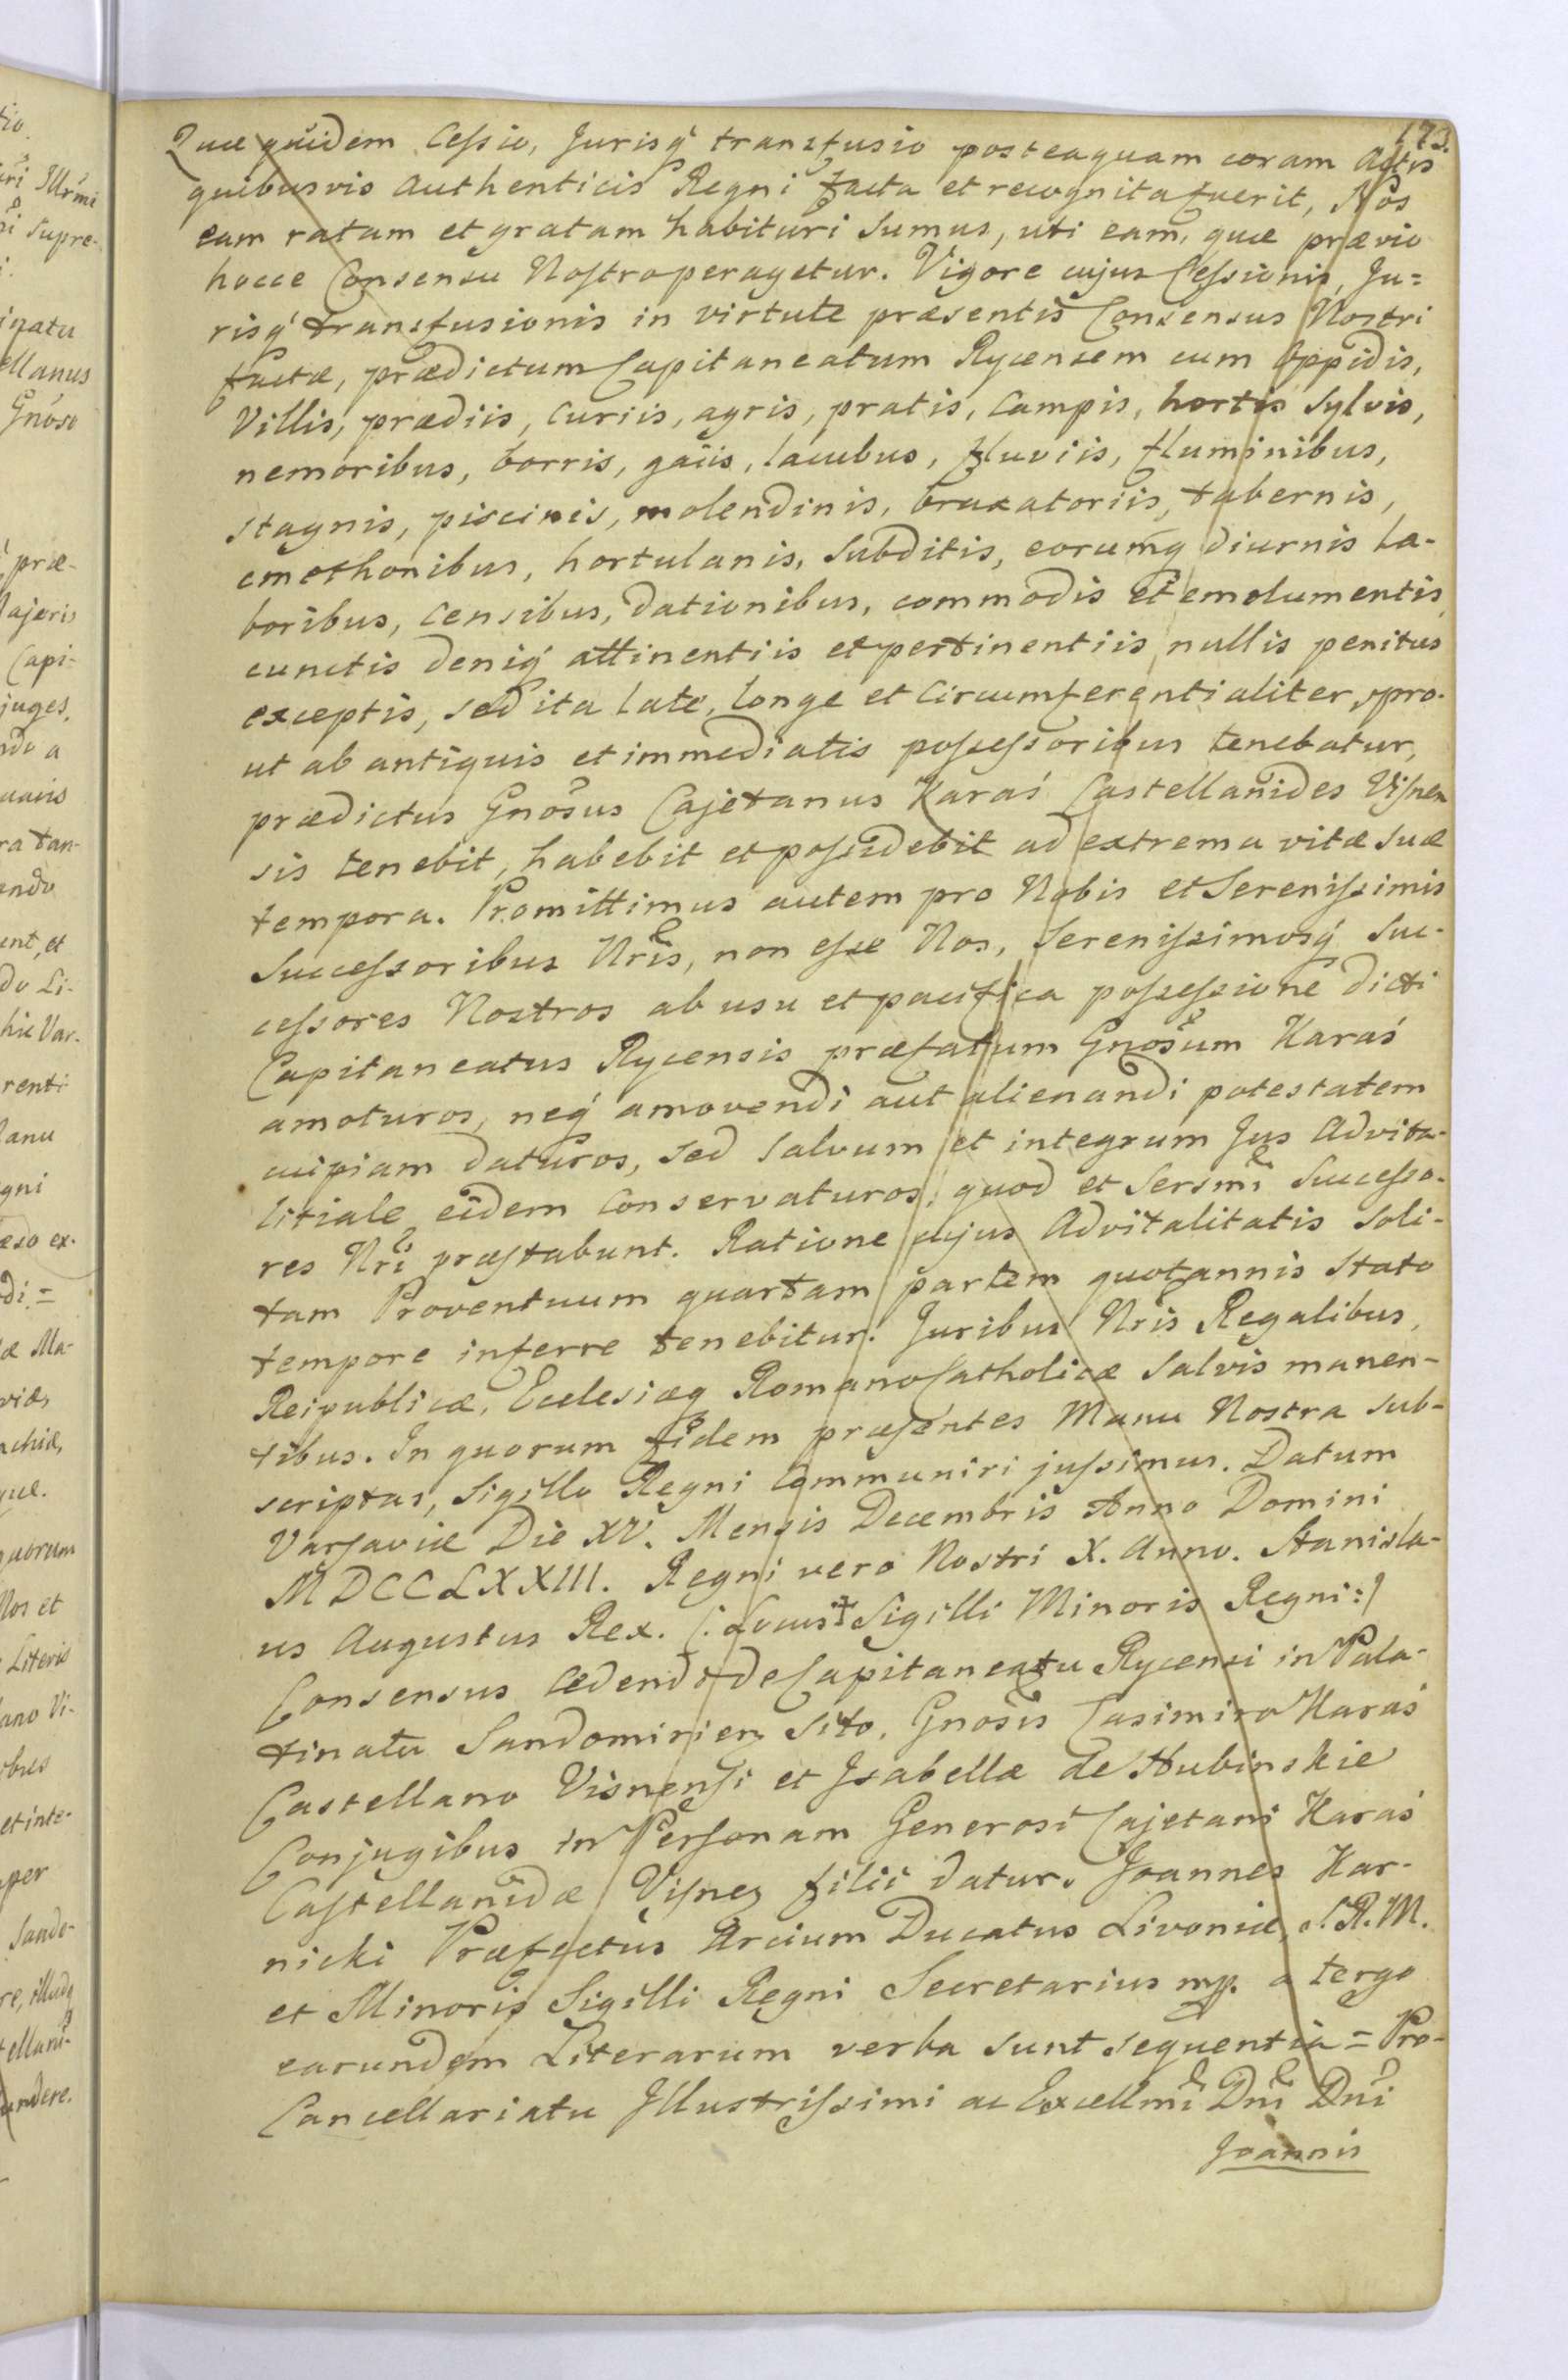 173.
Quæ quidem Cessio, Jurisq́ transfusio posteaquam coram Actis
quibusvis Authenticis Regni facta et recognita fuerit, Nos
eam ratam et gratam habituri sumus, uti eam, quæ prævio
hocce Consensu Nostro peragetur. Vigore cujus Cessionis, Ju=
risq́ transfusionis in virtute præsentis Consensus Nostri
factæ, prædictum Capitaneatum Rycensem cum Oppidis,
Villis, prædiis, curiis, agris, pratis, campis, hortis sylvis,
nemoribus, borris, gaiis, lacubus, fluviis, fluminibus,
stagnis, piscinis, molendinis, braxatoriis, tabernis,
cmethonibus, hortulanis, subditis, eorumq̃ diurnis la-
boribus, censibus, dationibus, commodis et emolumentis,
cunctis deniq́ attinentiis et pertinentiis, nullis penitus
exceptis, sed ita late, longe et circumferentialiter, pro-
ut ab antiquis et immediatis possessoribus tenebatur,
prædictus Gnosus Cajetanus Karaś Castellanides Visnen
sis tenebit, habebit et possidebit ad extrema vitæ suæ
tempora. Promittimus autem pro Nobis et Serenissimis
Successoribus Nris, non esse Nos, Serenissimosq́ Suc-
cessores Nostros ab usu et pacifica possessione dicti
Capitaneatus Rycensis præfatum Gnosum Karaś
amoturos, neq́ amovendi aut alienandi potestatem
cuipiam daturos, sed salvum et integrum Jus Advita-
litiale eidem conservaturos, quod et Sersmi Successo-
res Nri præstabunt. Ratione cujus Advitalitatis soli-
tam Proventuum quartam partem quotannis stato
tempore inferre tenebitur. Juribus Nris Regalibus,
Reipublicæ, Ecclesiæq Romano Catholicæ salvis manen-
tibus. In quorum fidem præsentes Manu Nostra sub-
scriptas, Sigillo Regni communiri jussimus. Datum
Varsaviæ Die XV. Mensis Decembris Anno Domini
MDCCLXXIII. Regni vero Nostri X. Anno. Stanisla-
us Augustus Rex. (: Locus † Sigilli Minoris Regni :)
Consensus cedendi de Capitaneatu Rycensi in Pala-
tinatu Sandomirien sito, Gnosis Casimiro Karaś
Castellano Visnensi et Isabellæ de Hubinskie
Conjugibus in Personam Generosi Cajetani Karaś
Castellanidæ Visnen filii datur. Joannes Kar-
nicki Præfectus Arcium Ducatus Livoniæ, S. R. M.
et Minoris Sigilli Regni Secretarius mp. a tergo
earundem Literarum verba sunt sequentia = Pro-
Cancellariatu Illustrissimi ac Excellmi Dni Dni
Joannis